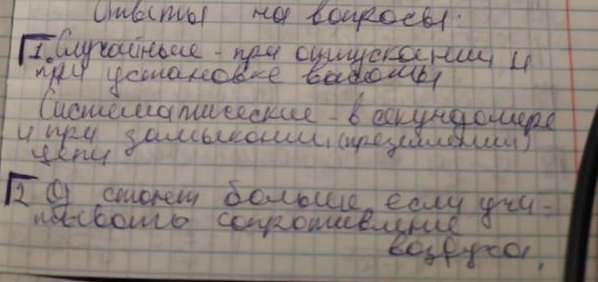 Ответы на вопросы.
1. Случайные - при опускании и
при установке высоты
Систематические - в секундомере
и при замыкании (приземлении)
цепи
2 станет больше, если учи-
тывать сопротивление
воздуха.